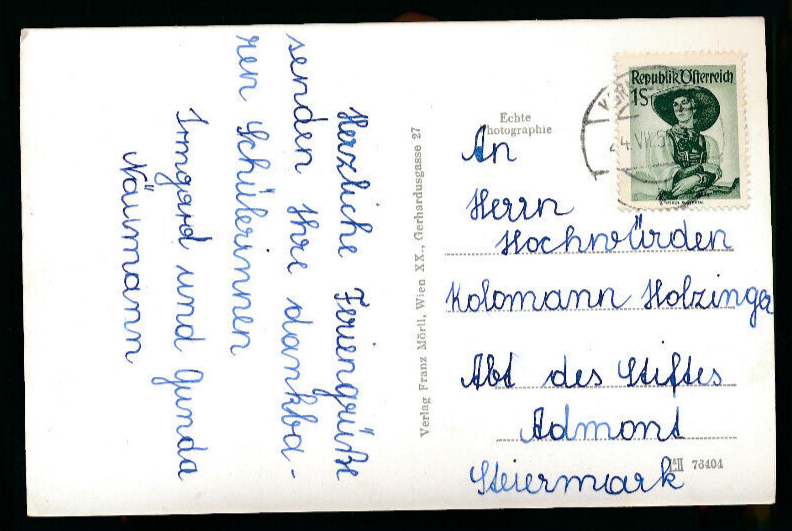 Herzliche Feriengrüße
senden Ihre dankba-
ren Schülerinnen
Irmgard und Gunda
Näumann
Verlag Franz Mörtl, Wien XX., Gerhardusgasse 27
Echte
Photographie
Republik Österreich
1S
24.VII.5
An
Herrn
Hochwürden
Kolomann Holzinger
Abt des Stiftes
Admont
Steiermark
76404